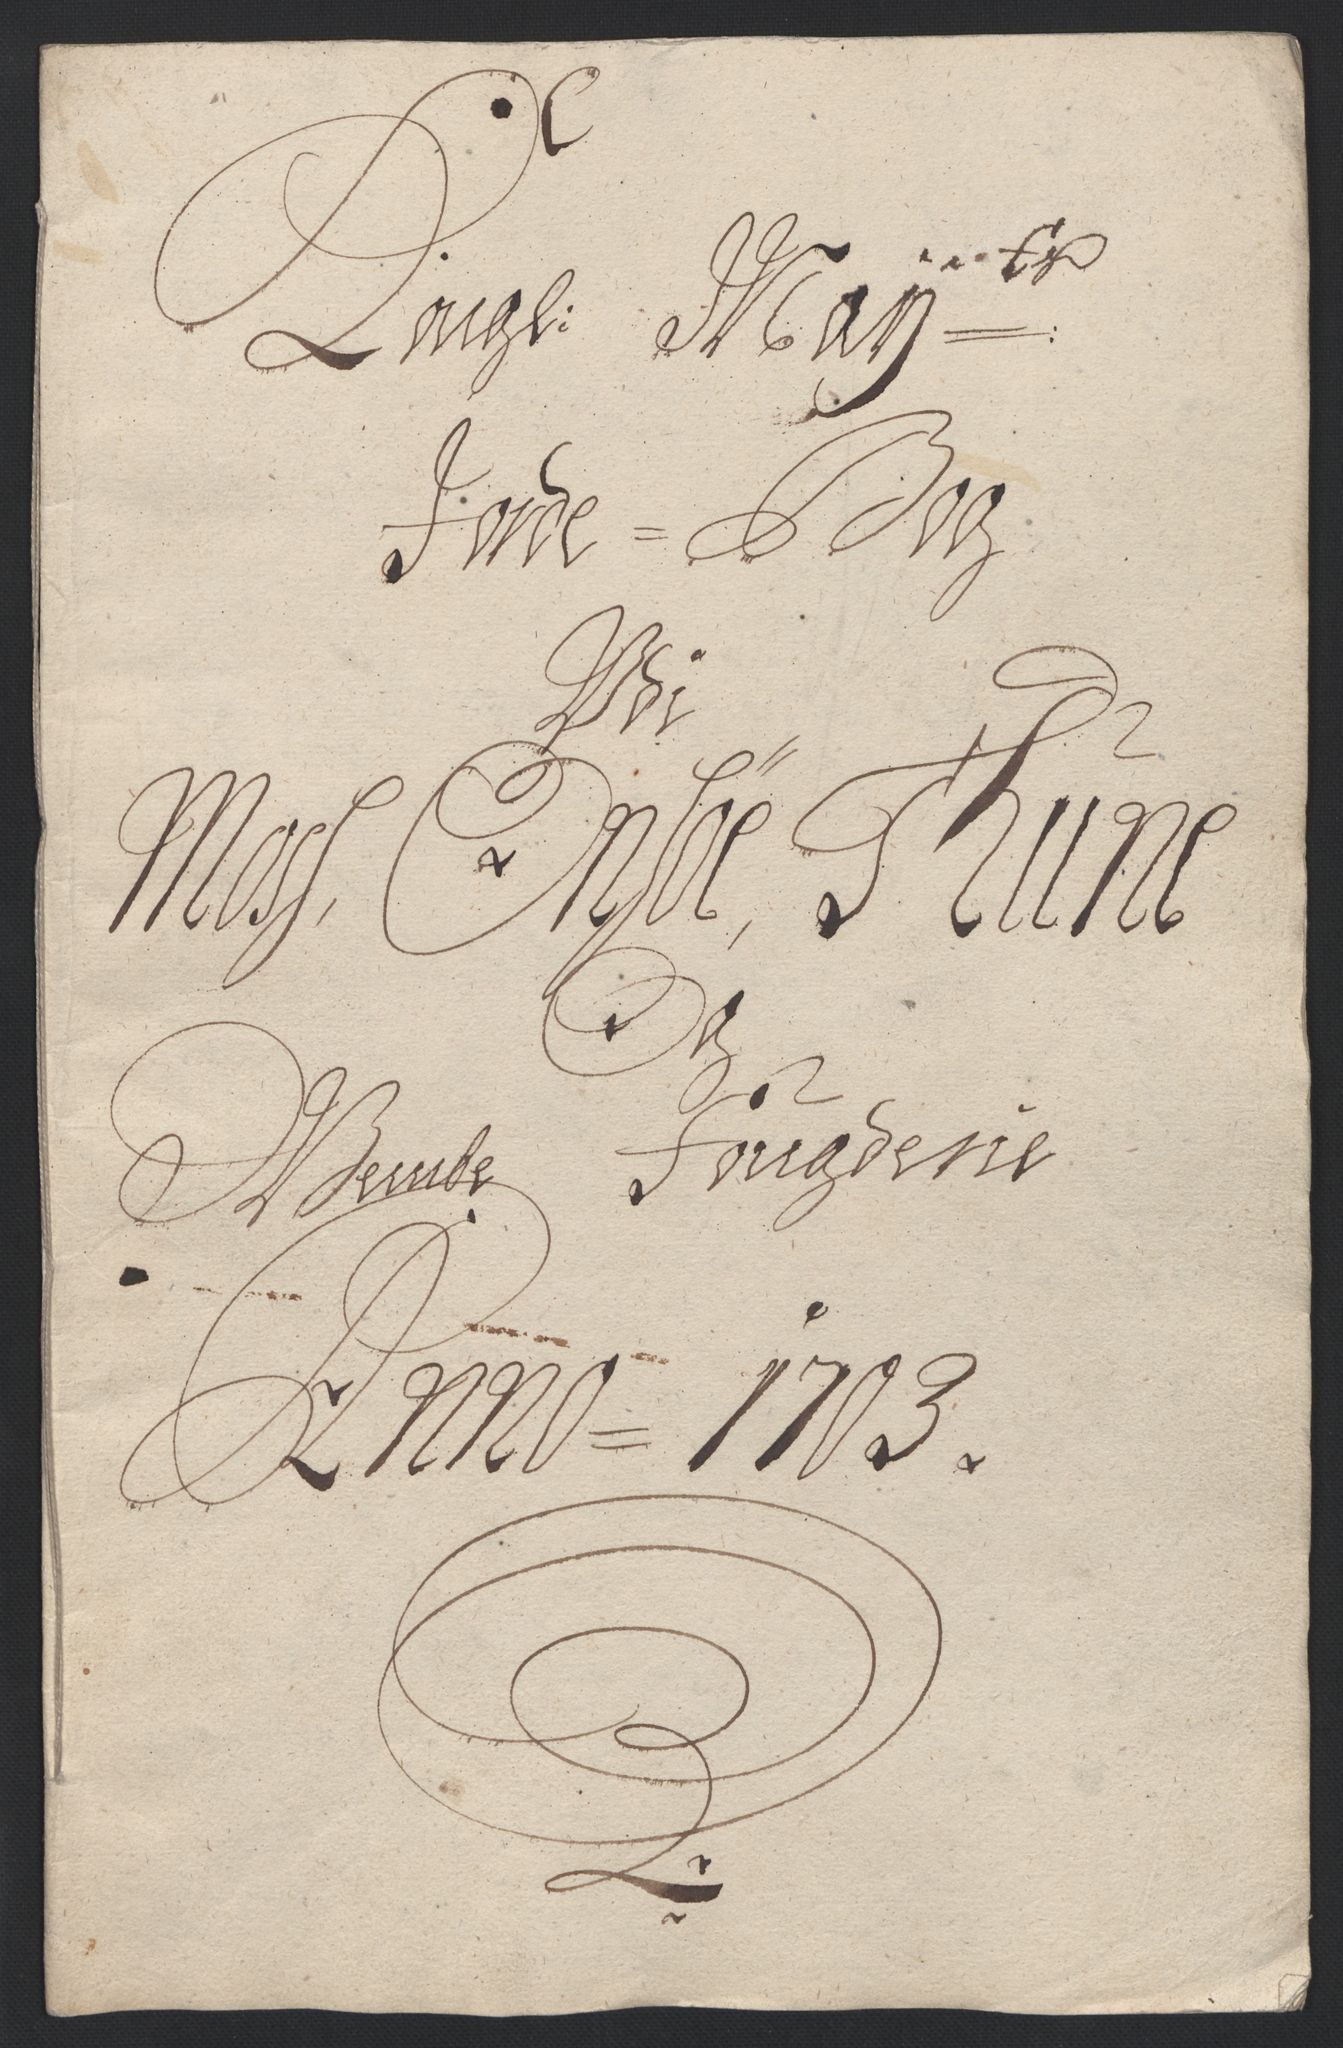 Kongl: Maÿ=ts:
Jorde=Bog
Udi
Moss, Onsöe, Thüne
Og
Wemble Fougderie
Anno=1703.